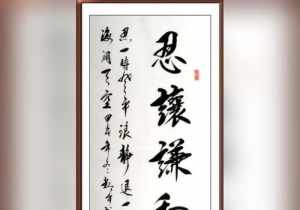 忍讓謙和
忍一時風平浪靜退一
海闊天空甲午年